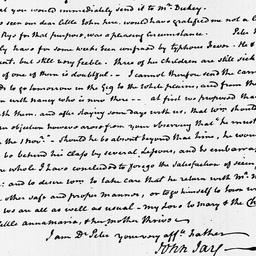 at you would immediately send it to Mr. Duckey.
seen our dear little John here, would have gratified me not a l
Rye for that purpose, was a pleasing circumstance. Peter
ly have for some weeks been confined by typhous Fever. He &
ent, but still very feeble. three of his children are still sick
of one of them is doubtful — I cannot therefore send the carr
ds to go tomorrow in the Gig to the white plains, and from the
on with nancy who is now there — at first we proposed tha
th them, and after staying some days with us, that Wm should
an objection however arose from your observing that "he must
the 1 Novr." — Should he be absent beyond that time, he wou
to be behind his class by several Lessons, and be embarra
the whole I have concluded to forego the Satisfaction of seein
: and to desire Wm to take care that he return with Mr.
other safe and proper manner, or to go himself to town w
we are all as well as usual — my Love to mary & the Ch
little annamaria, & her mother thrive —
I am Dr. Peter your very afft. Father
John Jay —